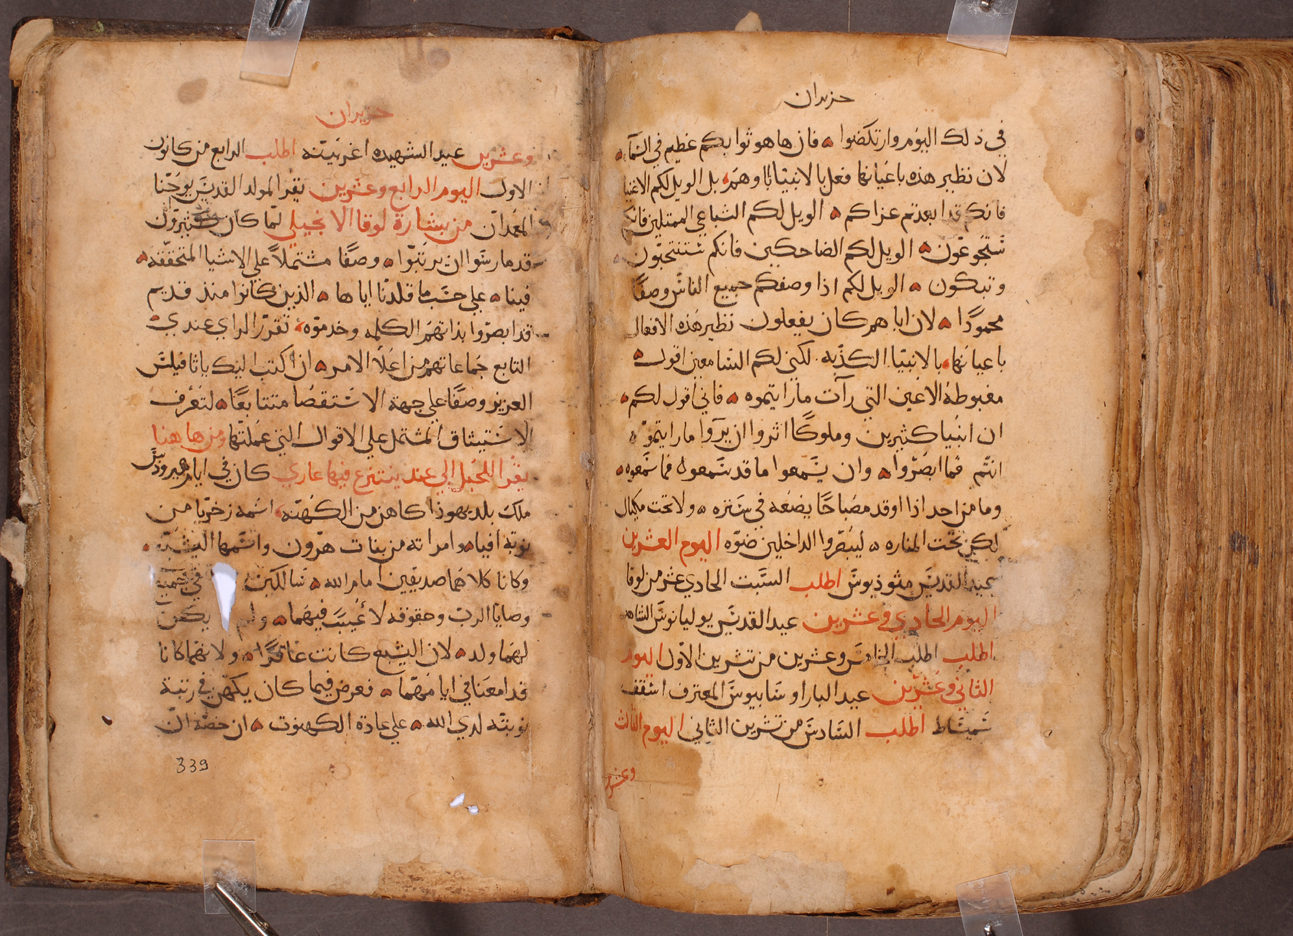 حزيران
في ذلك اليوم وارتكضوا ۰ فان هاهو ثوابكم عظيم في السماء ۰
لان نظير هذه باعيانها فعل بالانبيا اباوهم ۰ بل الويل لكم الاغنيا
فانكم قد ابعدتم عزاكم ۰ الويل لكم الشباعي الممتلين فانكم
ستجوعون ۰ الويل لكم الضاحكين فانكم ستنتحبون
وتبكون ۰ الويل لكم اذا وصفكم جميع الناس وصفًا
محمودًا ۰ لان اباهم كان يفعلون نظير هذه الافعال
باعيانها بالانبيا الكذبه لكني لكم السامعين اقول ۰
مغبوطة الاعين التي رأت ما رايتموه ۰ فاني اقول لكم ۰
ان انبيا كثيرين وملوكًا اثروا ان يروا ما رايتموه
انتم فما ابصروا ۰ وان يسمعوا ما قد تسمعوه فما سمعوه ۰
وما من احد اذا اوقد مصباحًا يضعه في سترة ۰ ولا تحت مكيال
لكن تحت المناره ۰ ليبصروا الداخلين ضوه اليوم العشرين
عيد القديس مثوذيوس اطلب السبت الحادي عشر من لوقا
اليوم الحادي وعشرين عيد القديس يوليانوس الشاهد
اطلب اطلب وعشرين من تشرين الأول اليوم
الثاني وعشرين عيد البار اوسابيوس المعترف اسقف
سميساط اطلب السادس من تشرين الثاني اليوم الثالث
وعشرين
حزيران
وعشرين عيد الشهيده اغربينه اطلب الرابع من كانون
الاول اليوم الرابع وعشرين نقرا لمولد القديس يوحنا
المعمدان من بشارة لوقا الانجيلي لما كان كثيرون
قد مارسوا ان يرتبوا ۰ وصفًا مشتملاً علي الاشيا المتحققه ۰
فينا ۰ علي حسبما قلدنا اياها ۰ الذين كانوا منذ قديم
قد ابصروا بذاتهم الكلمه وخدموه ۰ تقرر الراي عندي
التابع جماعاتهم من اعلا الامر ۰ ان اكتب اليك يا ثافيلس
العزيز وصفًا علي جهة الاستقصا متتابعًا ۰ لتعرف
الاستيثاق المشتمل علي الاقوال التي عملتها ومن هاهنا
كان في ايام هيرودس
ملك بلد يهوذا كاهن من الكهنه ۰ اسمه زخريا من
نوبة افيا ۰ وامراته من بنات هرون واسمها اليشبع ۰
وكانا كلاهما صديقين امام الله ۰ سالكين في جميع
وصايا الرب وحقوقه لا عيب فيهما ۰ ولم يكن
لهما ولد ۰ لان اليشبع كانت عاقرًا ۰ ولانهما كانا
قد امعنا في ايامهما ۰ فعرض فيما كان يكهن في رتبة
نوبته لدي الله ۰ علي عادة الكهنوت ۰ ان حصه ان
339